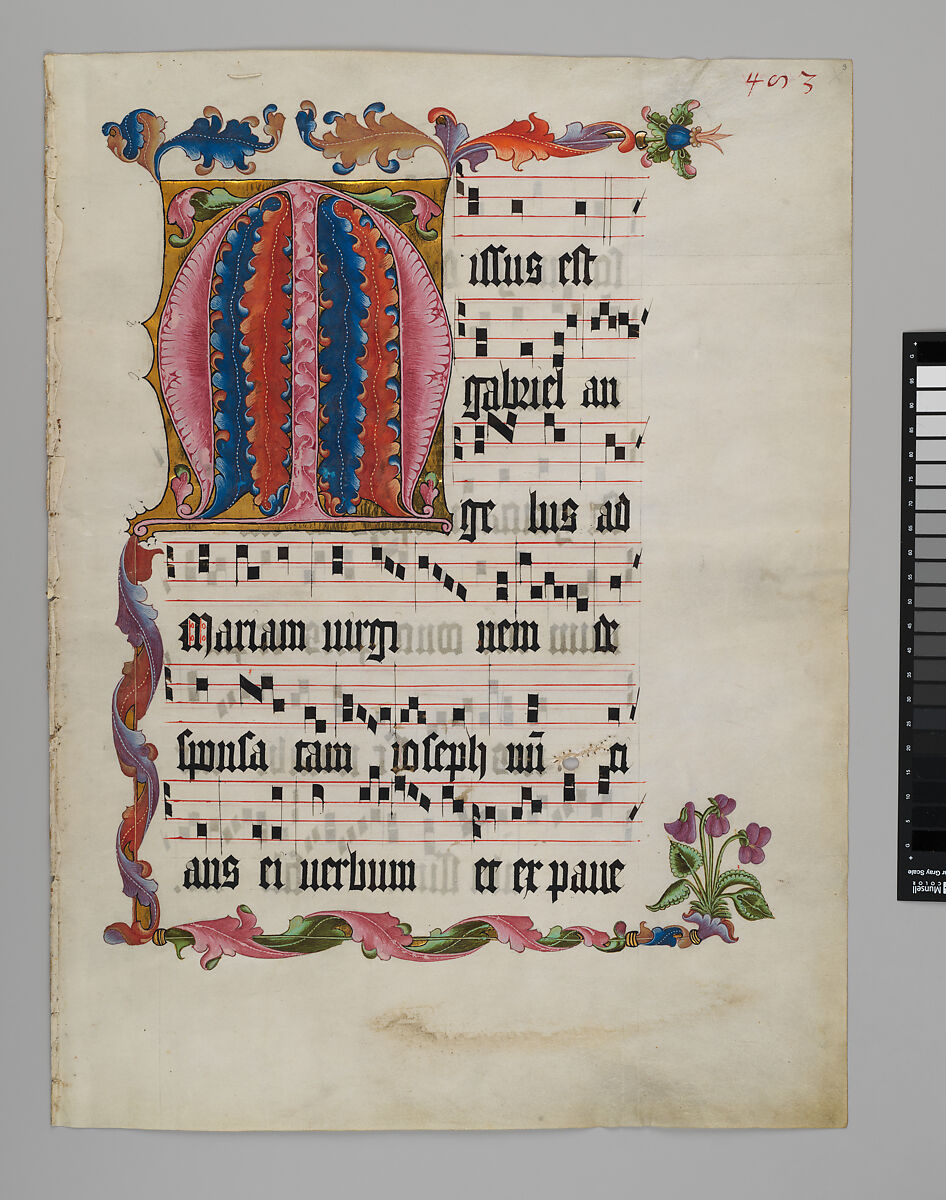 453
Missus est
gabriel an
ge lus ad
Mariam virgi nem de
sponsa tam ioseph nū ci
ans ei verbum et ex paue